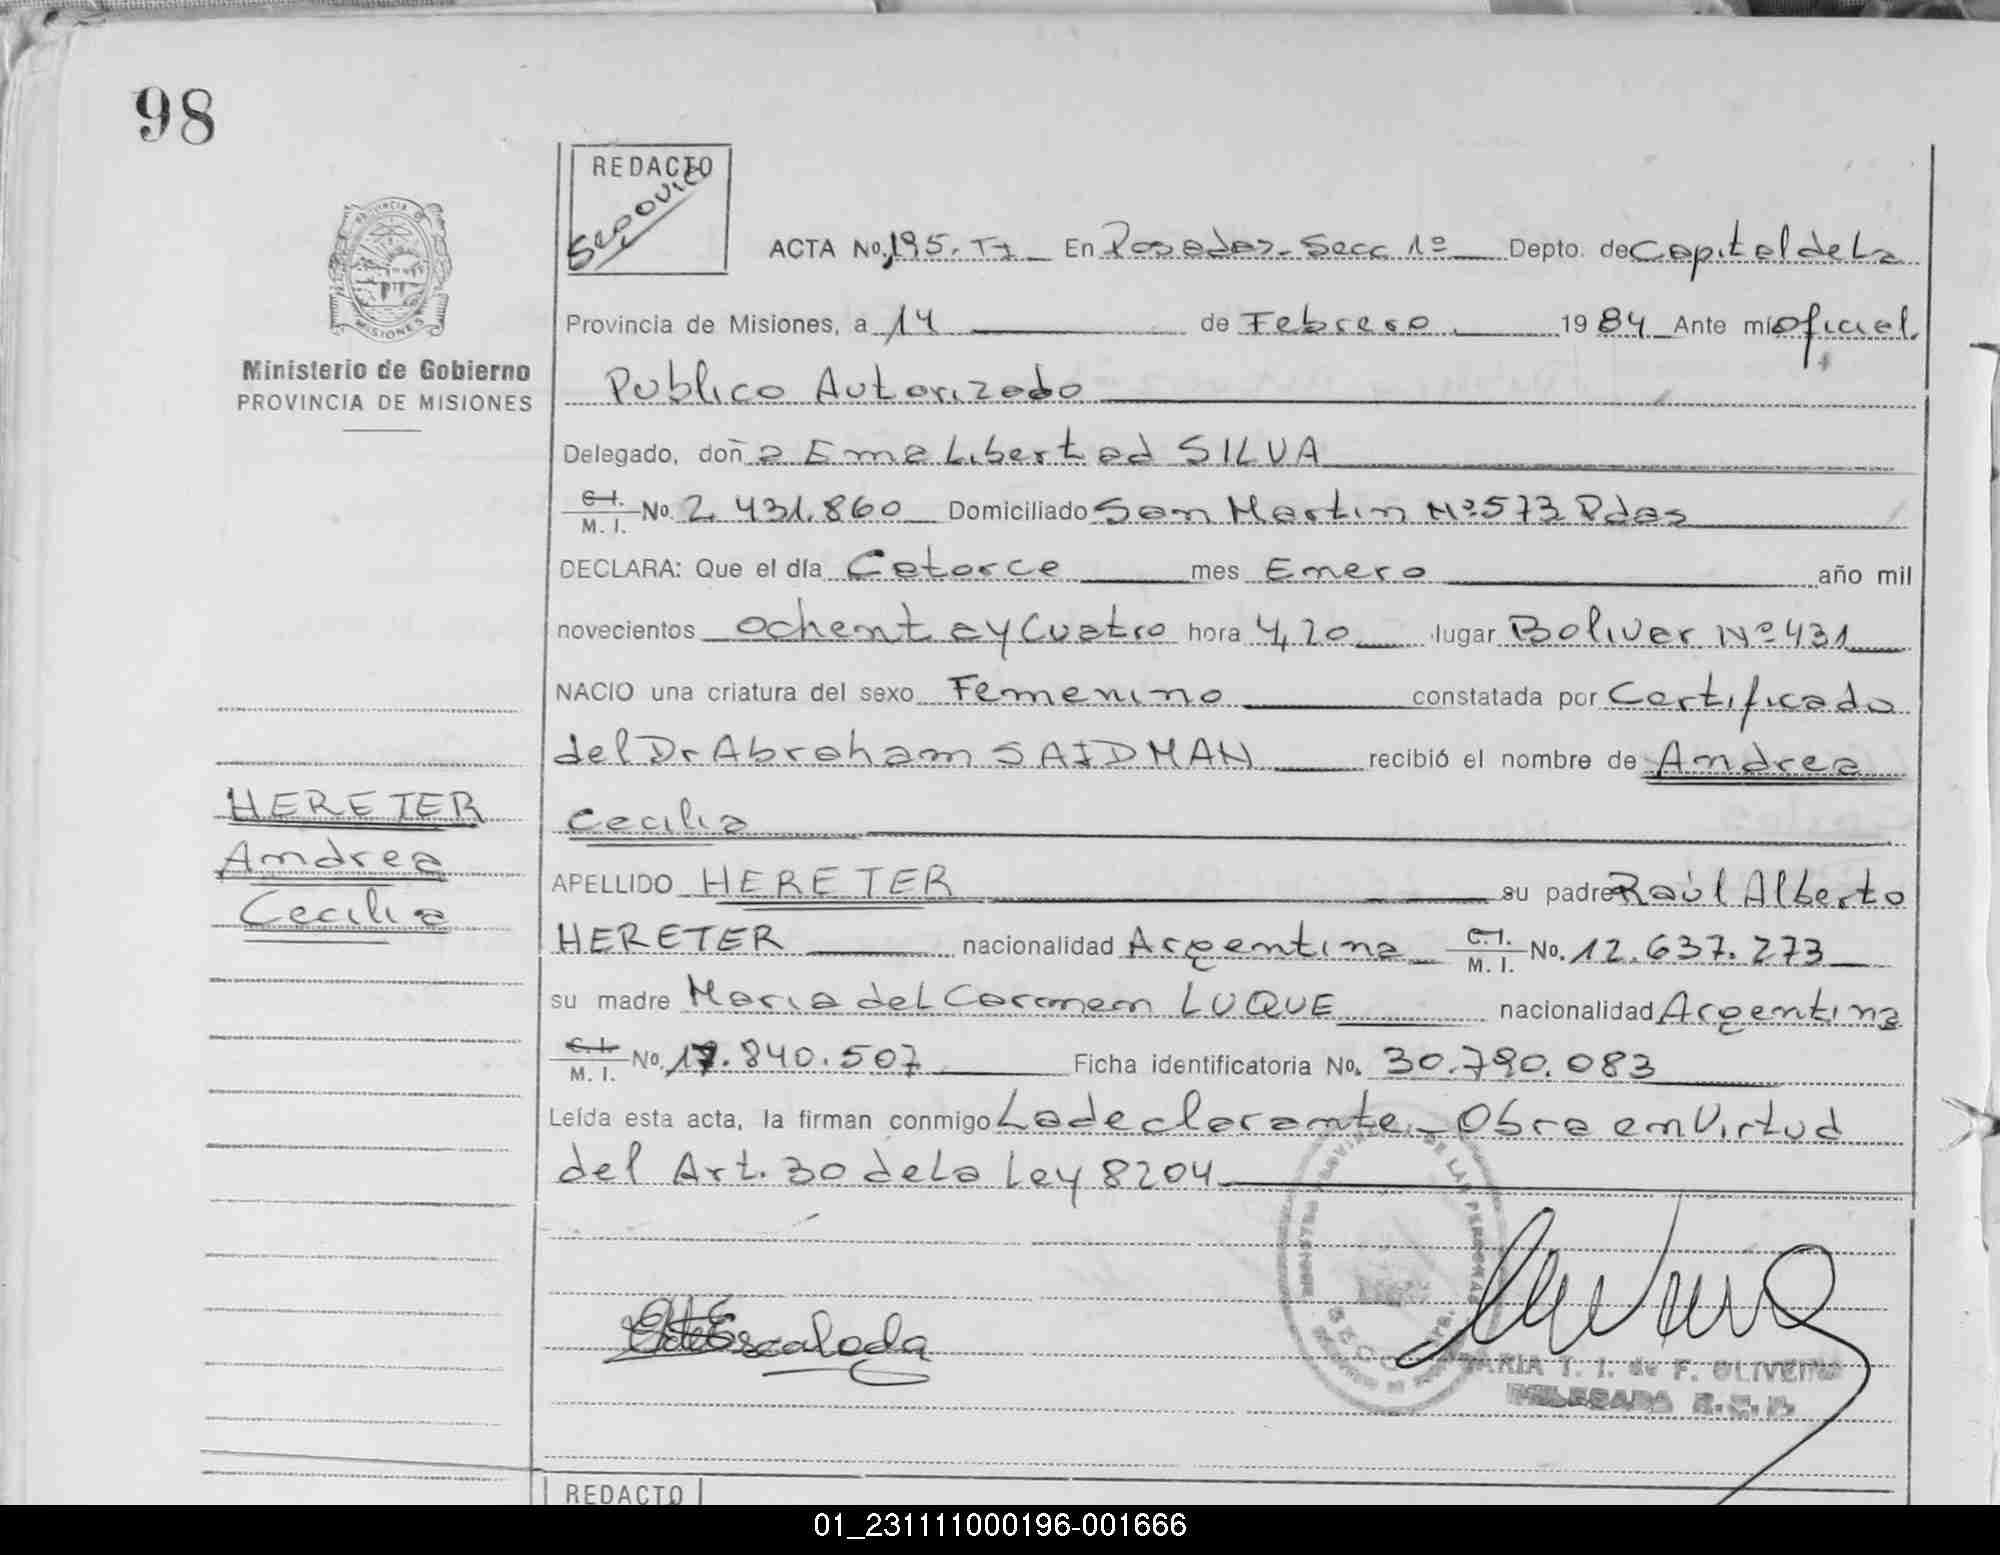 98
REDACTO
PROVINCIA DE
MISIONES
Ministerio de Gobierno
PROVINCIA DE MISIONES
ACTA No. 195. T1 En Posadas-Secc 1º Depto. de Capital de La
Provincia de Misiones, a 14 de Febrero 1984 Ante mi oficial
Publico Autorizado
Delegado, doña Ema Libertad SILVA
C.I. M.I. No. 2.431.860 Domiciliado San Martin Nº 573 Pdas
DECLARA: Que el día Catorce mes Enero año mil
novecientos Ochenta y Cuatro hora 4,20 lugar Bolivar Nº 431
NACIO una criatura del sexo Femenino constatada por Certificado
del Dr Abraham SAIDMAN recibió el nombre de Andrea
Cecilia
HERETER
Andrea
Cecilia
APELLIDO HERETER su padre Raúl Alberto
HERETER nacionalidad Argentina C.I. M.I. No. 12.637.273
su madre Maria del Carmen LUQUE nacionalidad Argentina
C.I. M.I. No. 17.840.507 Ficha identificatoria No. 30.790.083
Leída esta acta, la firman conmigo La declarante - Obra en Virtud
del Art. 30 de La Ley 8204
Escalada
MARIA T. I. de F. OLIVEIRA
DELEGADA R.C.P.
REDACTO
01_231111000196-001666